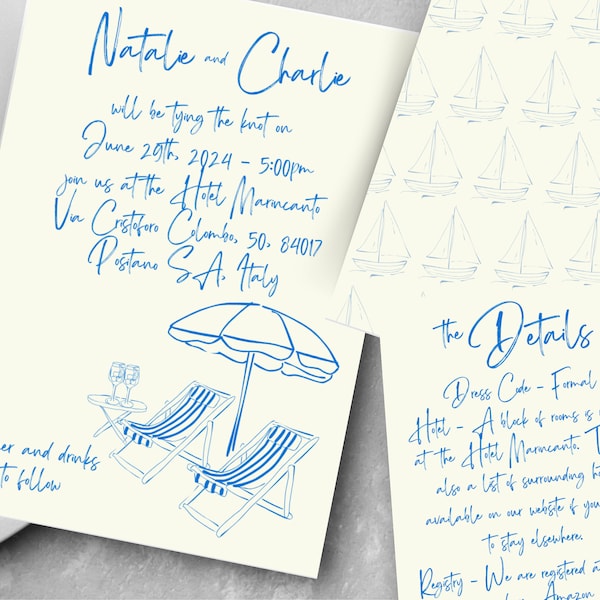 Natalie and Charlie
will be tying the knot on
June 29th, 2024 - 5:00pm
join us at the Hotel Marincanto
Via Cristoforo Colombo, 50, 84017
Positano SA, Italy
and drinks
to follow
the Details
Dress Code - Formal
Hotel - A block of rooms is
at the Hotel Marincanto.
also a list of surrounding
available on our website if you
to stay elsewhere.
Registry - We are registered at
Amazon